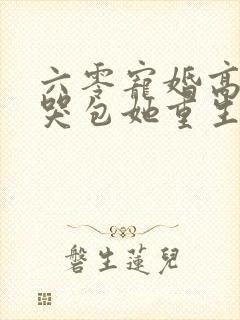 六零寵婚高
哭包她重生
磐生蓮兒